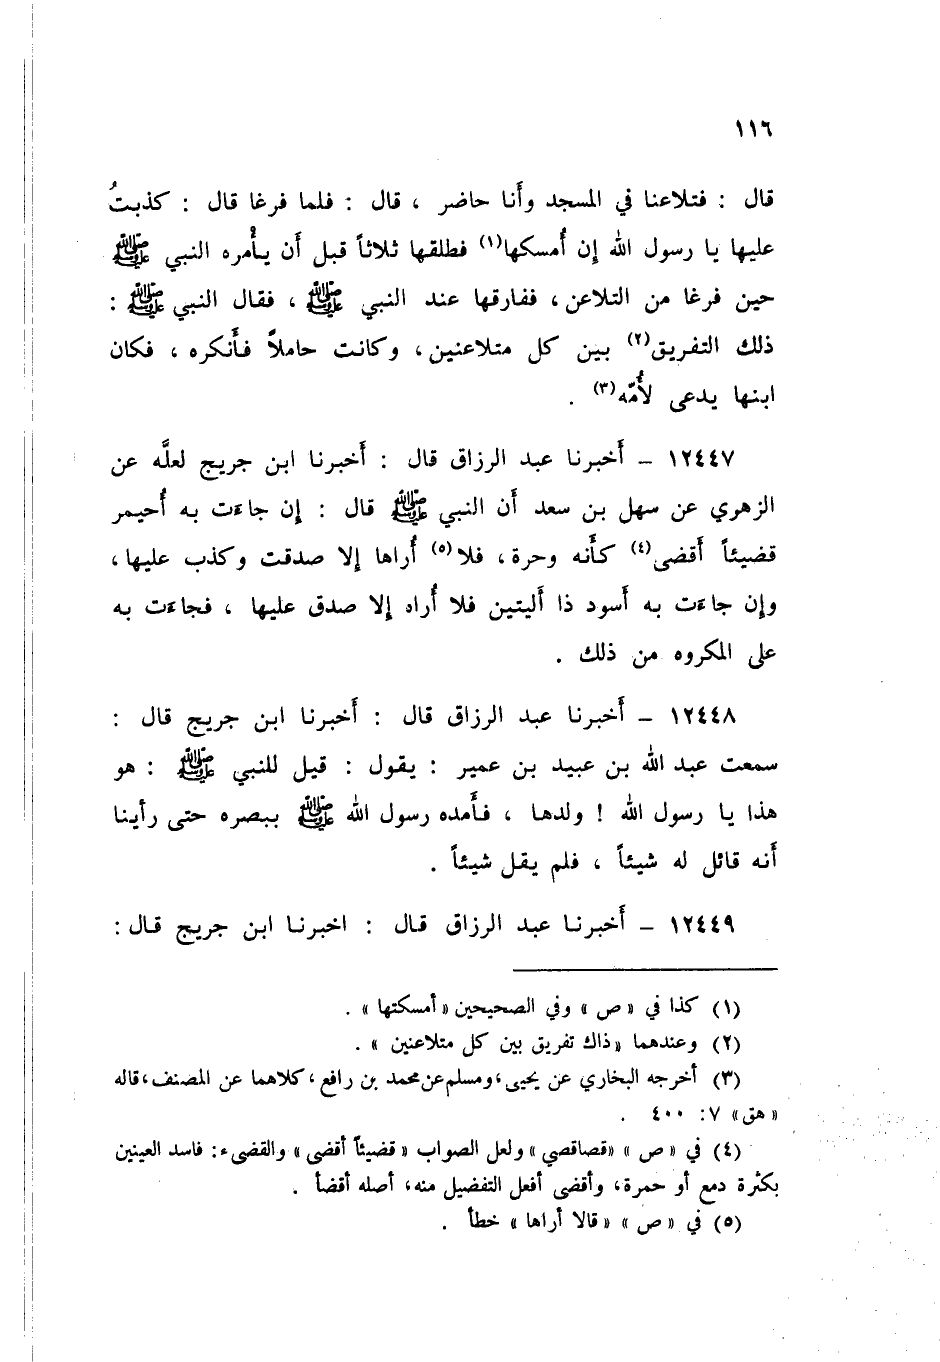 ١١٦
قال : فتلاعنا في المسجد وأَنا حاضر ، قال : فلما فرغا قال : كذبتُ
عليها يا رسول الله إن أُمسكها(١) فطلقها ثلاثاً قبل أَن يأْمره النبي ﷺ
حين فرغا من التلاعن، ففارقها عند النبي ﷺ ، فقال النبي ﷺ :
ذلك التفريق(٢) بين كل متلاعنين، وكانت حاملاً فأَنكره ، فكان
ابنها يدعى لأُمّه(٣) .
١٢٤٤٧ – أَخبرنا عبد الرزاق قال : أَخبرنا ابن جريج لعلَّه عن
الزهري عن سهل بن سعد أَن النبي ﷺ قال : إن جاءَت به أُحيمر
قضيئاً أَقضى(٤) كأَنه وحرة، فلا(٥) أُراها إلا صدقت وكذب عليها،
وإن جاءَت به أَسود ذا أَليتين فلا أُراه إلا صدق عليها ، فجاءَت به
على المكروه من ذلك .
١٢٤٤٨ – أَخبرنا عبد الرزاق قال : أَخبرنا ابن جريج قال :
سمعت عبد الله بن عبيد بن عمير : يقول : قيل للنبي ﷺ : هو
هذا يا رسول الله ! ولدها ، فأَمده رسول الله ﷺ ببصره حتى رأينا
أَنه قائل له شيئاً ، فلم يقل شيئاً .
١٢٤٤٩ – أَخبرنا عبد الرزاق قال : اخبرنا ابن جريج قال :
(١) كذا في « ص » وفي الصحيحين « أمسكتها » .
(٢) وعندهما «ذاك تفريق بين كل متلاعنين » .
(٣) أخرجه البخاري عن يحيى، ومسلم عن محمد بن رافع، كلاهما عن المصنف، قاله
« هق » ٧: ٤٠٠ .
(٤) في « ص » «قصاقصي» ولعل الصواب « قضيئاً أقضى » والقضيء: فاسد العينين
بكثرة دمع أو حمرة، وأقضى أفعل التفضيل منه، أصله أقضأ .
(٥) في « ص » « قالا أراها » خطأ .